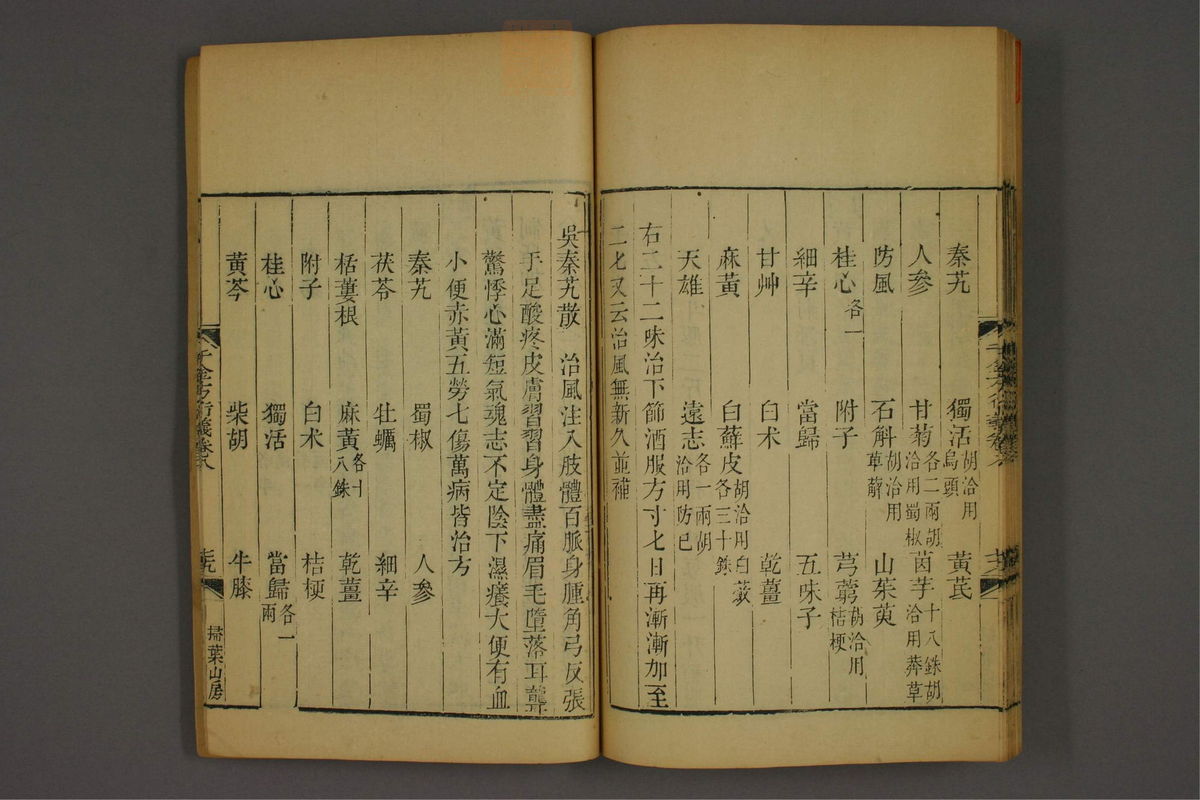 秦艽 獨活胡洽用烏頭 黃芪
人參 甘菊各二兩胡洽用蜀椒 茵芋十八銖胡洽用莽草
防風 石斛胡洽用萆薢 山茱萸
桂心各一 附子 芎藭胡洽用桔梗
細辛 當歸 五味子
甘艸 白术 乾薑
麻黃 白蘚皮胡洽用白蘞各三十銖
天雄 遠志各一兩胡洽用防已
右二十二味治下節酒服方寸匕日再漸漸加至
二匕又云治風無新久並補
吳秦艽散 治風注入肢體百脈身腫角弓反張
手足酸疼皮膚習習身體盡痛眉毛墮落耳聾
驚悸心滿短氣魂志不定陰下濕癢大便有血
小便赤黃五勞七傷萬病皆治方
秦艽 蜀椒 人參
茯苓 牡蠣 細辛
栝蔞根 麻黃各十八銖 乾薑
附子 白术 桔梗
桂心 獨活 當歸各一兩
黃芩 柴胡 牛膝
千金方衍義卷八
掃葉山房